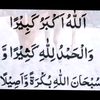 اَللهُ اَكْبَرُ كَبِيْرًا
وَالْحَمْدُ لِلّٰهِ كَثِيْرًا وَّ
سُبْحَانَ اللهِ بُكْرَةً وَّاَصِيْلًا